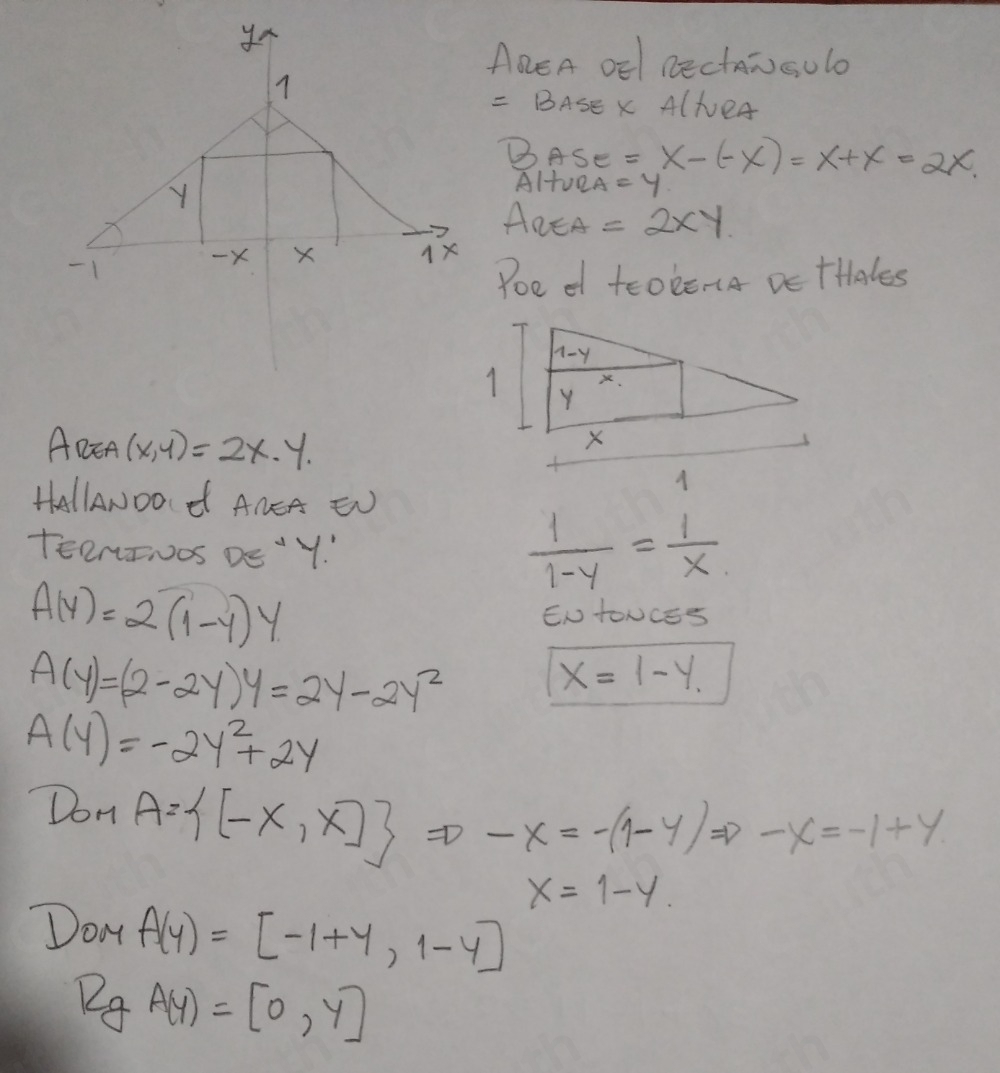 y
1
y
-1
-x
x
1 x
AREA DEL RECTÁNGULO
= BASE x Altura
BASE = x-(-x) = x+x = 2x.
Altura = y.
AREA = 2xy.
Por el teórema de thales
1
1-y
x.
y
x
1
1/(1-y) = 1/x.
ENTONCES
x = 1-y.
AREA(x,y) = 2x.y.
HALLANDO el AREA EN
TERMINOS DE "y".
A(y) = 2(1-y)y
A(y)=(2-2y)y = 2y-2y²
A(y) = -2y²+2y
Dom A={[-x, x]} ⇒ -x = -(1-y) ⇒ -x = -1+y.
x = 1-y.
Dom A(y) = [-1+y, 1-y]
Rg A(y) = [0, y]